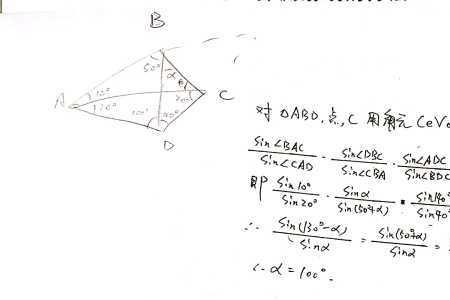 B
50°
α
θ
10°
20°
A
C
100°
40°
D
对 △ABD, 点 C 用角元 CeV
sin∠BAC/sin∠CAD · sin∠DBC/sin∠CBA · sin∠ADC/sin∠BDC
即 sin10°/sin20° · sinα/sin(50°+α) · sin140°/sin40°
∴ sin(130°-α)/sinα = sin(50°+α)/sinα =
∴ α = 100°.